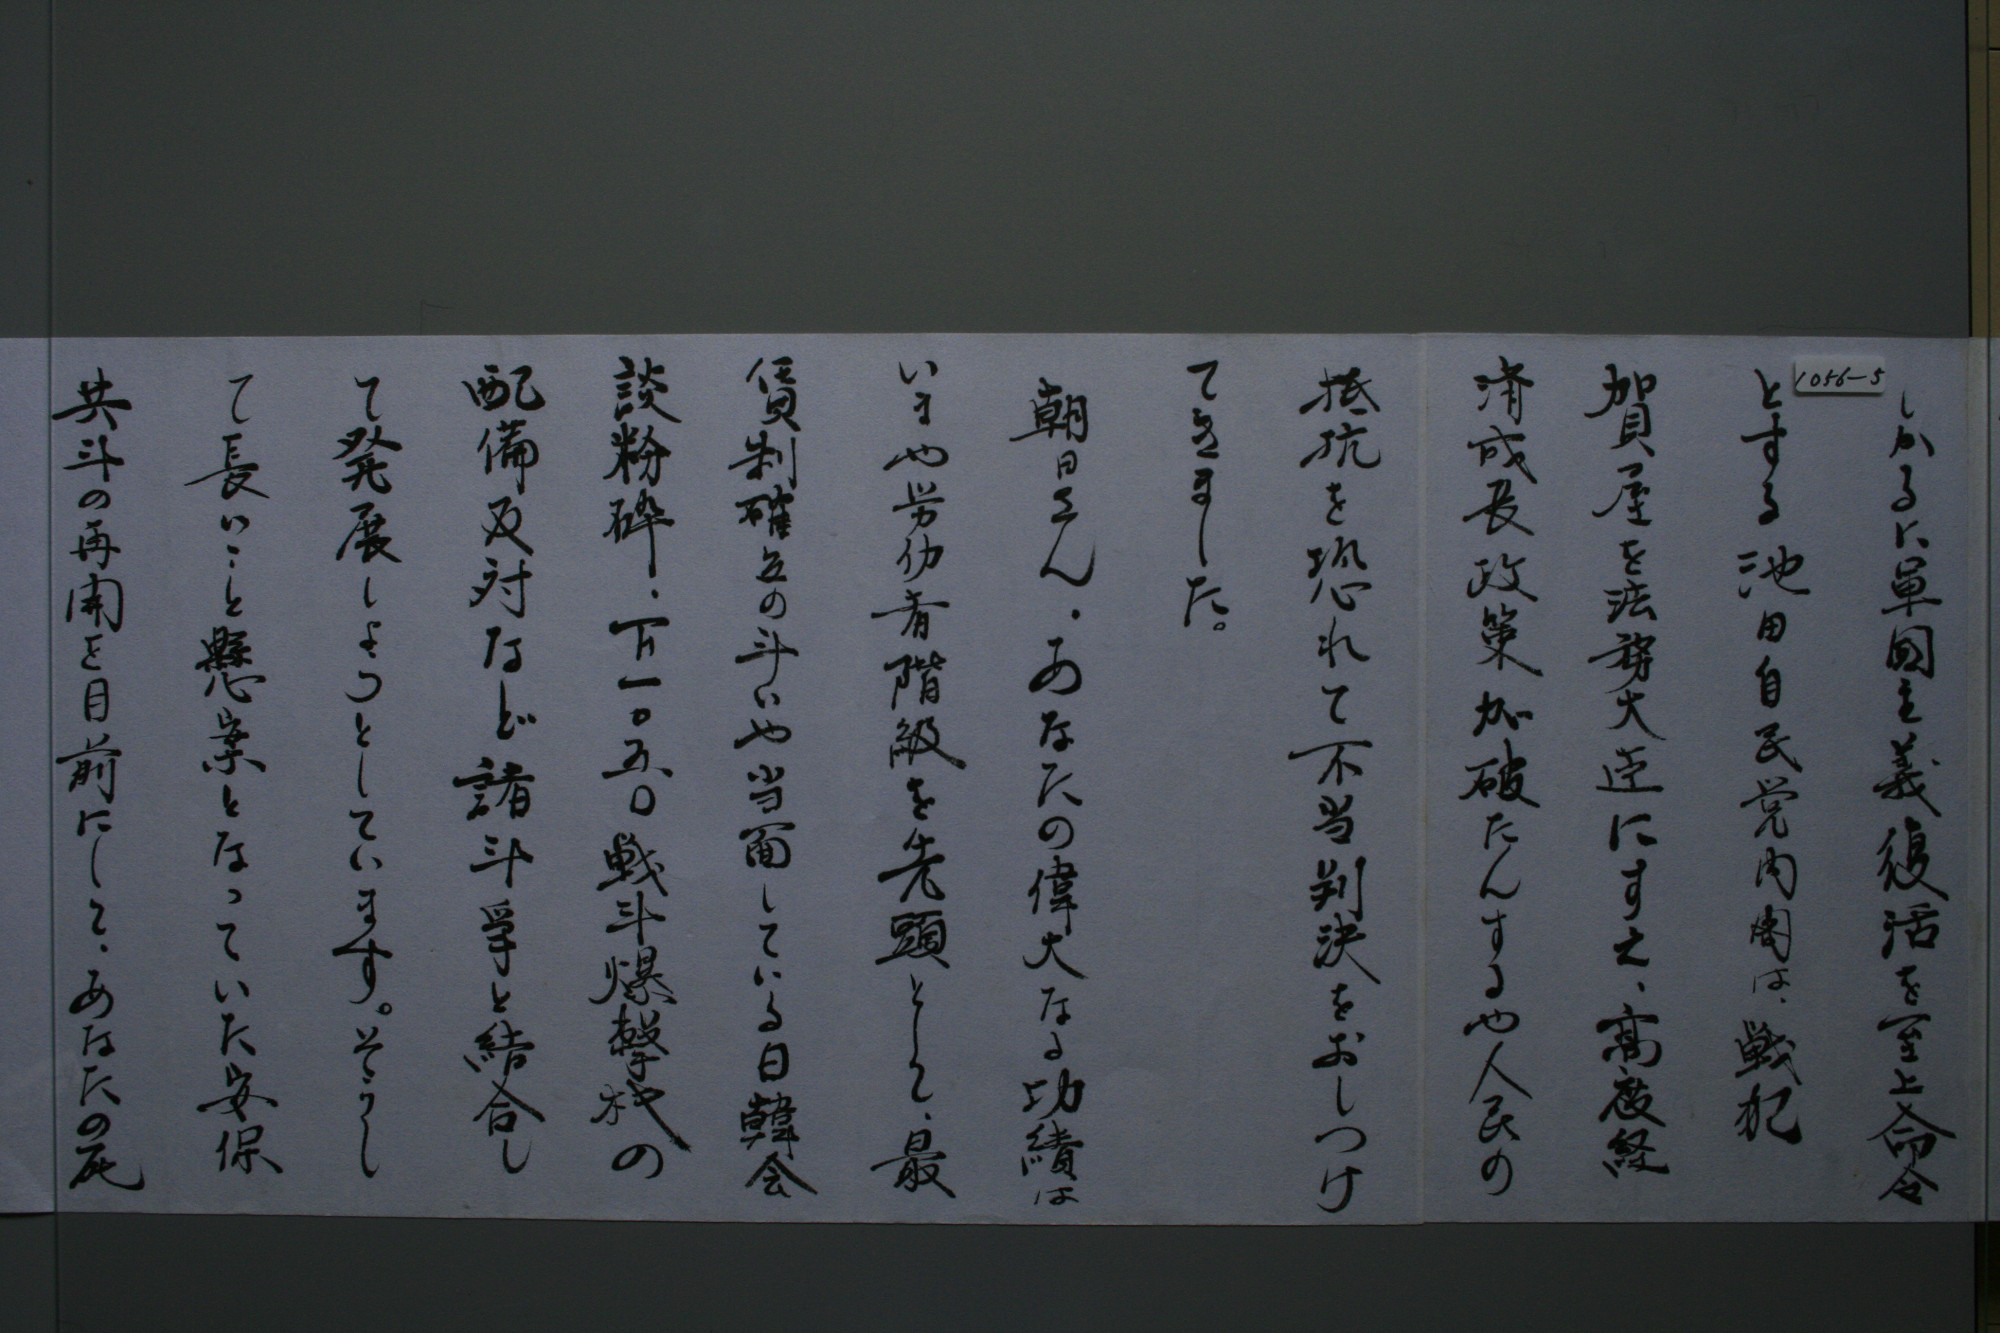 1056-5
しかるに軍国主義復活を至上命令
とする池田自民党内閣は、戦犯
賀屋を法務大臣にすえ、高度経
済成長政策が破たんするや人民の
抵抗を恐れて不当判決をおしつけ
てきました。
朝日さん、あなたの偉大なる功績は
いまや労仂者階級を先頭として、最
賃制確立の斗いや当面している日韓会
談粉砕、F一〇五D戦斗爆撃機の
配備反対など諸斗争と結合し
て発展しようとしています。そうし
て長いこと懸案となっていた安保
共斗の再開を目前にして、あなたの死